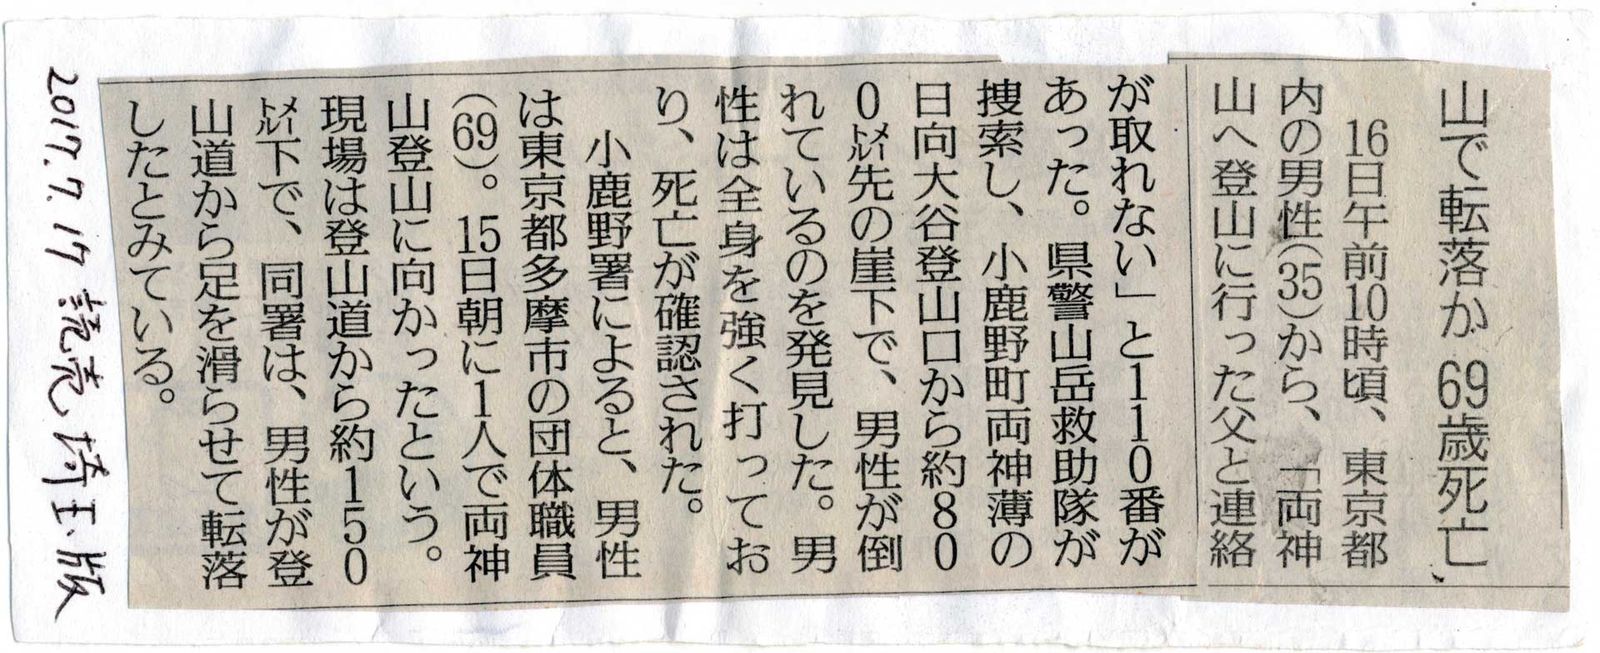 山で転落か 69歳死亡
16日午前10時頃、東京都
内の男性(35)から、「両神
山へ登山に行った父と連絡
が取れない」と110番が
あった。県警山岳救助隊が
捜索し、小鹿野町両神薄の
日向大谷登山口から約80
0㍍先の崖下で、男性が倒
れているのを発見した。男
性は全身を強く打ってお
り、死亡が確認された。
小鹿野署によると、男性
は東京都多摩市の団体職員
(69)。15日朝に1人で両神
山登山に向かったという。
現場は登山道から約150
㍍下で、同署は、男性が登
山道から足を滑らせて転落
したとみている。
2017.7.17 読売埼玉版